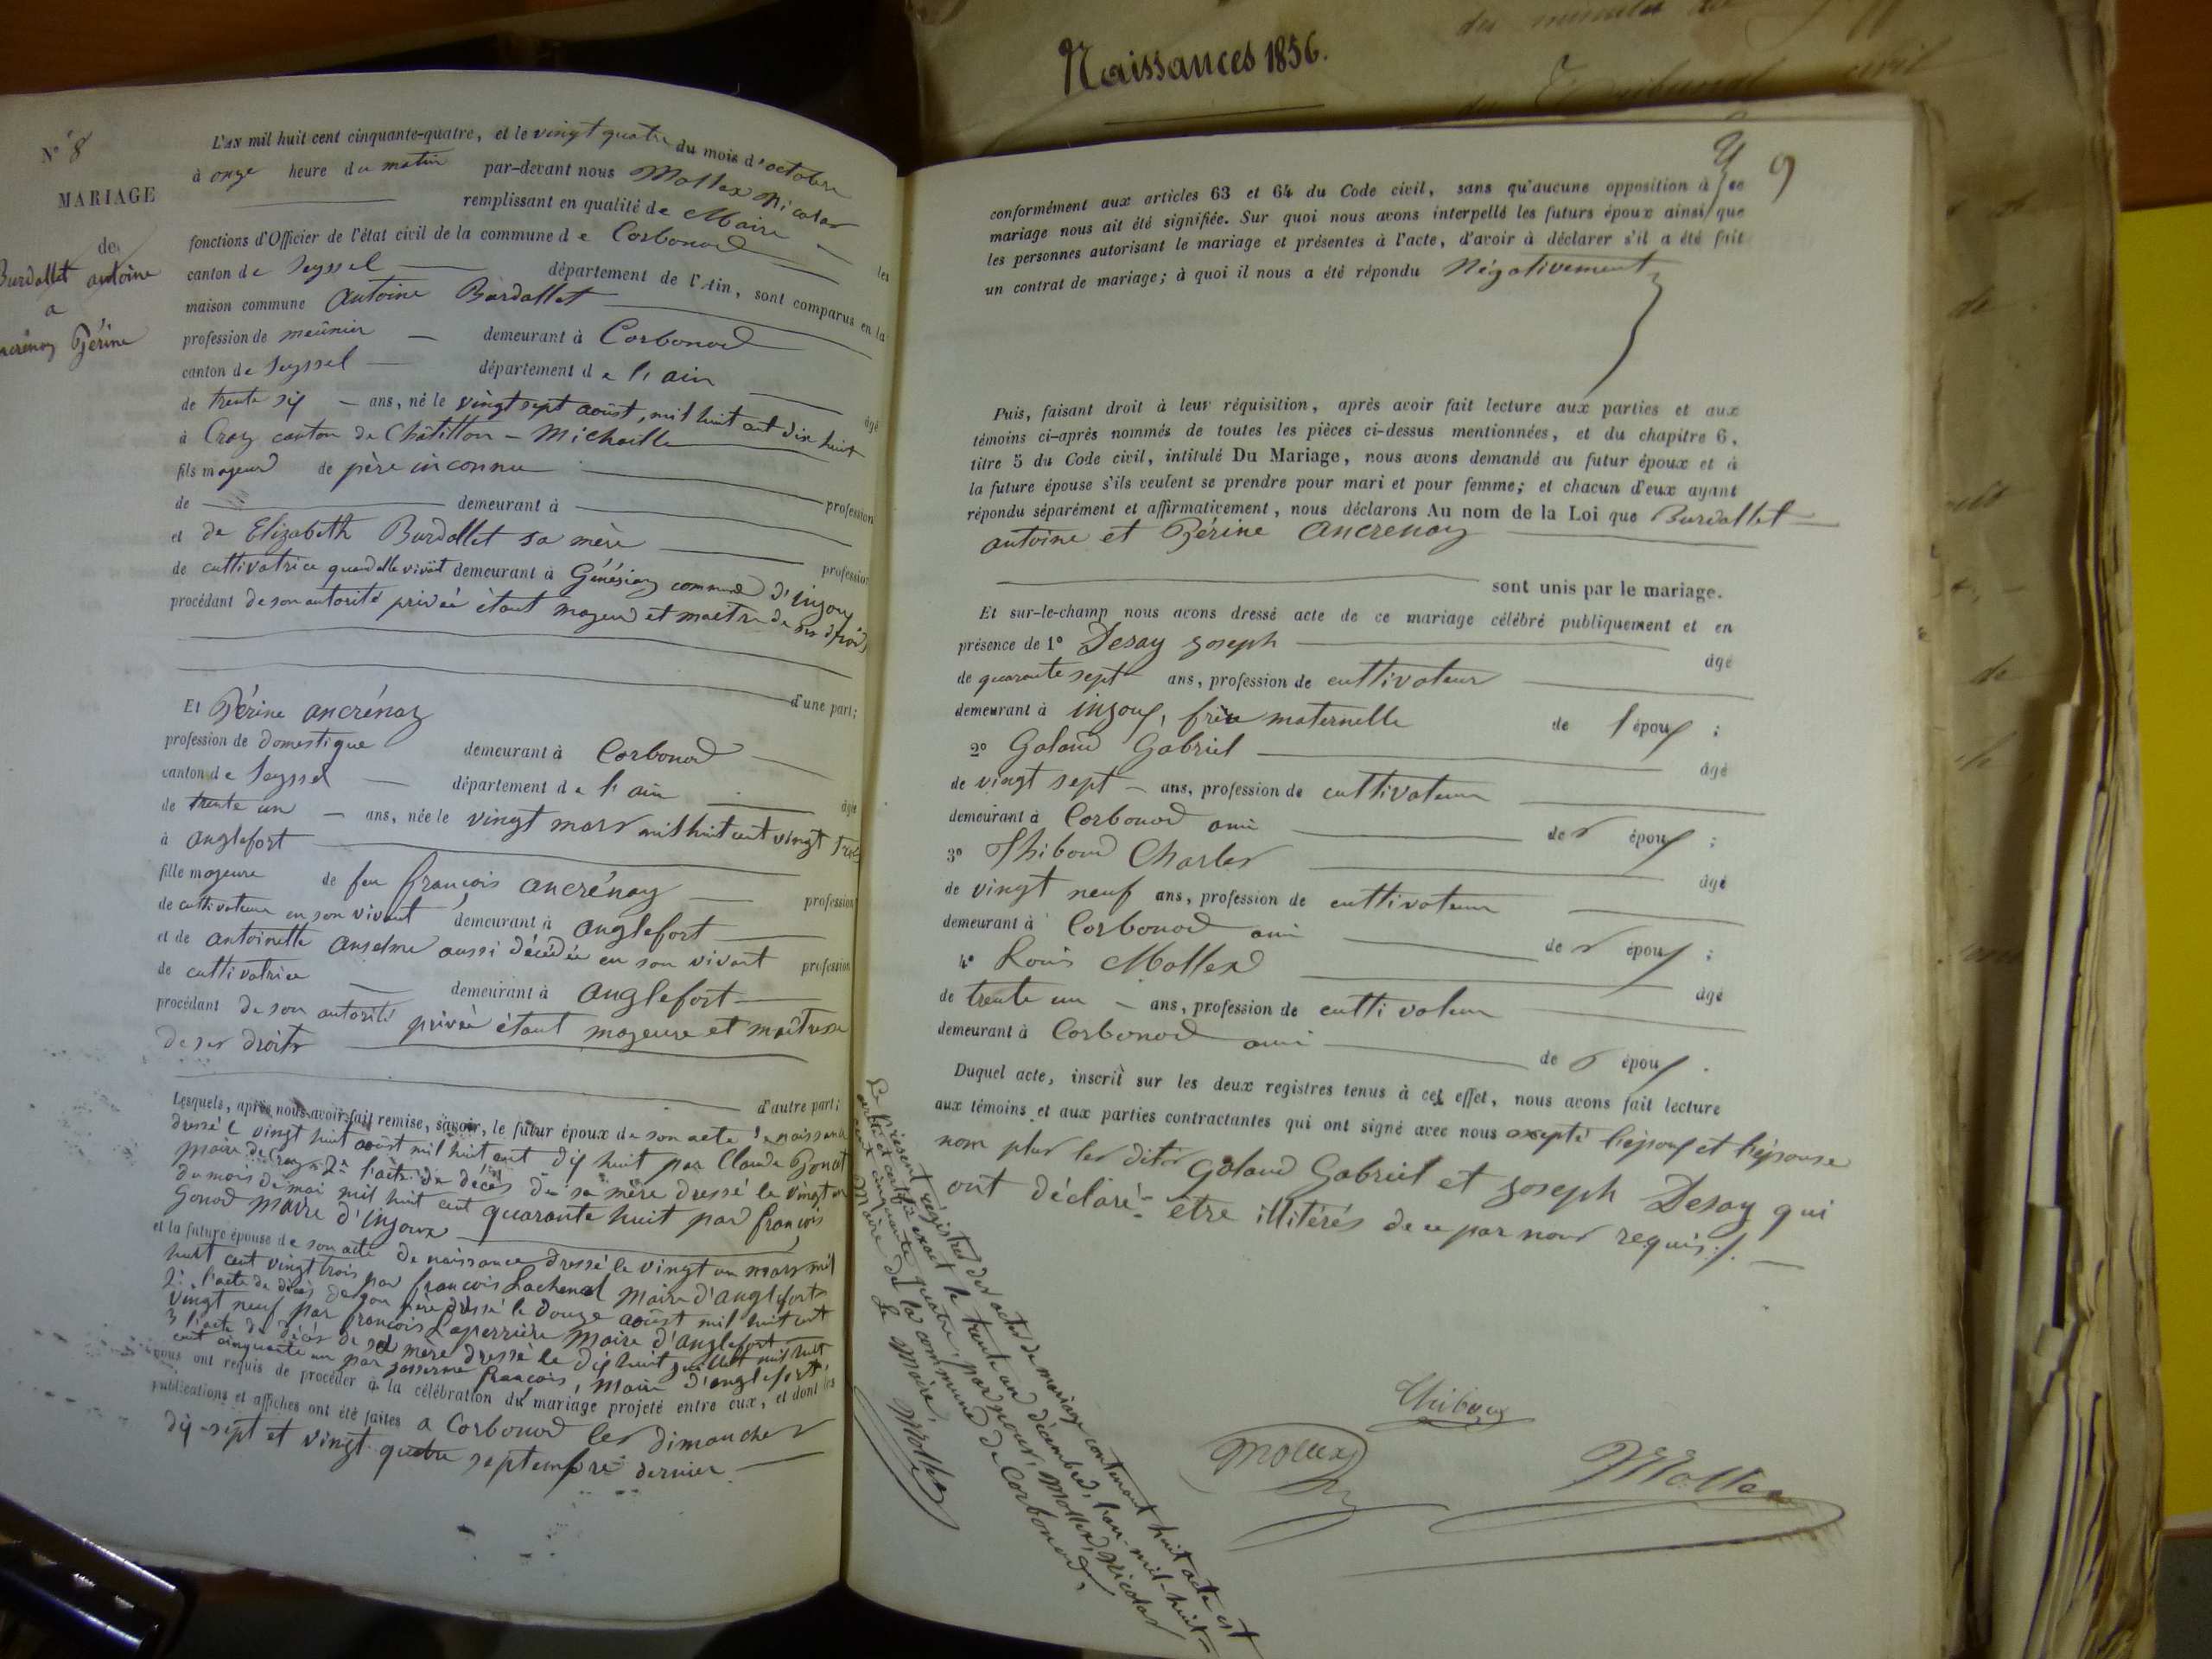 Naissances 1856.
du Tribunal civil
N° 8
MARIAGE
de
Burdallet antoine
a
Périne
L'AN mil huit cent cinquante-quatre, et le vingt quatre du mois d'octobre
à onze heure du matin par-devant nous Mollex Nicolas
remplissant en qualité de Maire les
fonctions d'Officier de l'état civil de la commune de Corbonod
canton de Seyssel département de l'Ain, sont comparus en la
maison commune Antoine Burdallet
profession de meûnier demeurant à Corbonod
canton de Seyssel département de l'ain âgé
de trente six ans, né le vingt sept août, mil huit cent dix huit
à Craz canton de Châtillon - Michaille
fils majeur de père inconnu profession
de demeurant à
et de Elizabeth Burdallet sa mère profession
de cultivatrice quand elle vivait demeurant à Génésiaz commune d'injoux
procédant de son autorité privée étant majeur et maitre de ses droits
d'une part;
Et Périne ancrénaz
profession de domestique demeurant à Corbonod
canton de Seyssel département de l'ain âgée
de trente un ans, née le vingt mars mil huit cent vingt trois
à anglefort
fille majeure de feu françois ancrénaz profession
de cultivateur en son vivant demeurant à anglefort
et de antoinette anselme aussi décédée en son vivant profession
de cultivatrice demeurant à anglefort
procédant de son autorité privée étant majeure et maitresse
de ses droits
d'autre part;
Lesquels, après nous avoir fait remise, savoir, le futur époux de son acte de naissance
dressé le vingt huit août mil huit cent dix huit par Claude
maire de Craz 2° l'acte de décès de sa mère dressé le vingt un
du mois de mai mil huit cent quarante huit par françois
Gonod maire d'injoux
et la future épouse de son acte de naissance dressé le vingt un mars mil
huit cent vingt trois par françois Lachenal maire d'anglefort
2° l'acte de décès de son père dressé le douze août mil huit cent
vingt neuf par françois Laperrière maire d'anglefort
3 l'acte de décès de sa mère dressé le dix huit juillet mil huit
cent cinquante un par françois, maire d'anglefort
nous ont requis de procéder à la célébration du mariage projeté entre eux, et dont les
publications et affiches ont été faites a Corbonod les dimanches
dix-sept et vingt quatre septembre dernier
9
conformément aux articles 63 et 64 du Code civil, sans qu'aucune opposition à ce
mariage nous ait été signifiée. Sur quoi nous avons interpellé les futurs époux ainsi que
les personnes autorisant le mariage et présentes à l'acte, d'avoir à déclarer s'il a été fait
un contrat de mariage; à quoi il nous a été répondu Négativement
Puis, faisant droit à leur réquisition, après avoir fait lecture aux parties et aux
témoins ci-après nommés de toutes les pièces ci-dessus mentionnées, et du chapitre 6,
titre 5 du Code civil, intitulé Du Mariage, nous avons demandé au futur époux et à
la future épouse s'ils veulent se prendre pour mari et pour femme; et chacun d'eux ayant
répondu séparément et affirmativement, nous déclarons Au nom de la Loi que Burdallet
antoine et Périne ancrenaz
sont unis par le mariage.
Et sur-le-champ nous avons dressé acte de ce mariage célébré publiquement et en
présence de 1° Desay Joseph âgé
de quarante sept ans, profession de cultivateur
demeurant à injoux, frère maternelle de l'époux ;
2° Galand Gabriel âgé
de vingt sept ans, profession de cultivateur
demeurant à Corbonod ami des époux ;
3° Thiboud Charles âgé
de vingt neuf ans, profession de cultivateur
demeurant à Corbonod ami des époux ;
4° Louis Mollex âgé
de trente un ans, profession de cultivateur
demeurant à Corbonod ami des époux .
Duquel acte, inscrit sur les deux registres tenus à cet effet, nous avons fait lecture
aux témoins et aux parties contractantes qui ont signé avec nous excepté l'époux et l'épouse
non plus les dits Galand Gabriel et Joseph Desay qui
ont déclaré être illitérés de ce par nous requis ./.
Thiboud
Mollex
Mollex
Le présent régistre des actes de mariage contenant huit acte est
certifié exact le trente un décembre, l'an mil-huit-
cent cinquante quatre, par nous, Mollex, Nicolas
maire de la commune de Corbonod,
Le Maire, Mollex